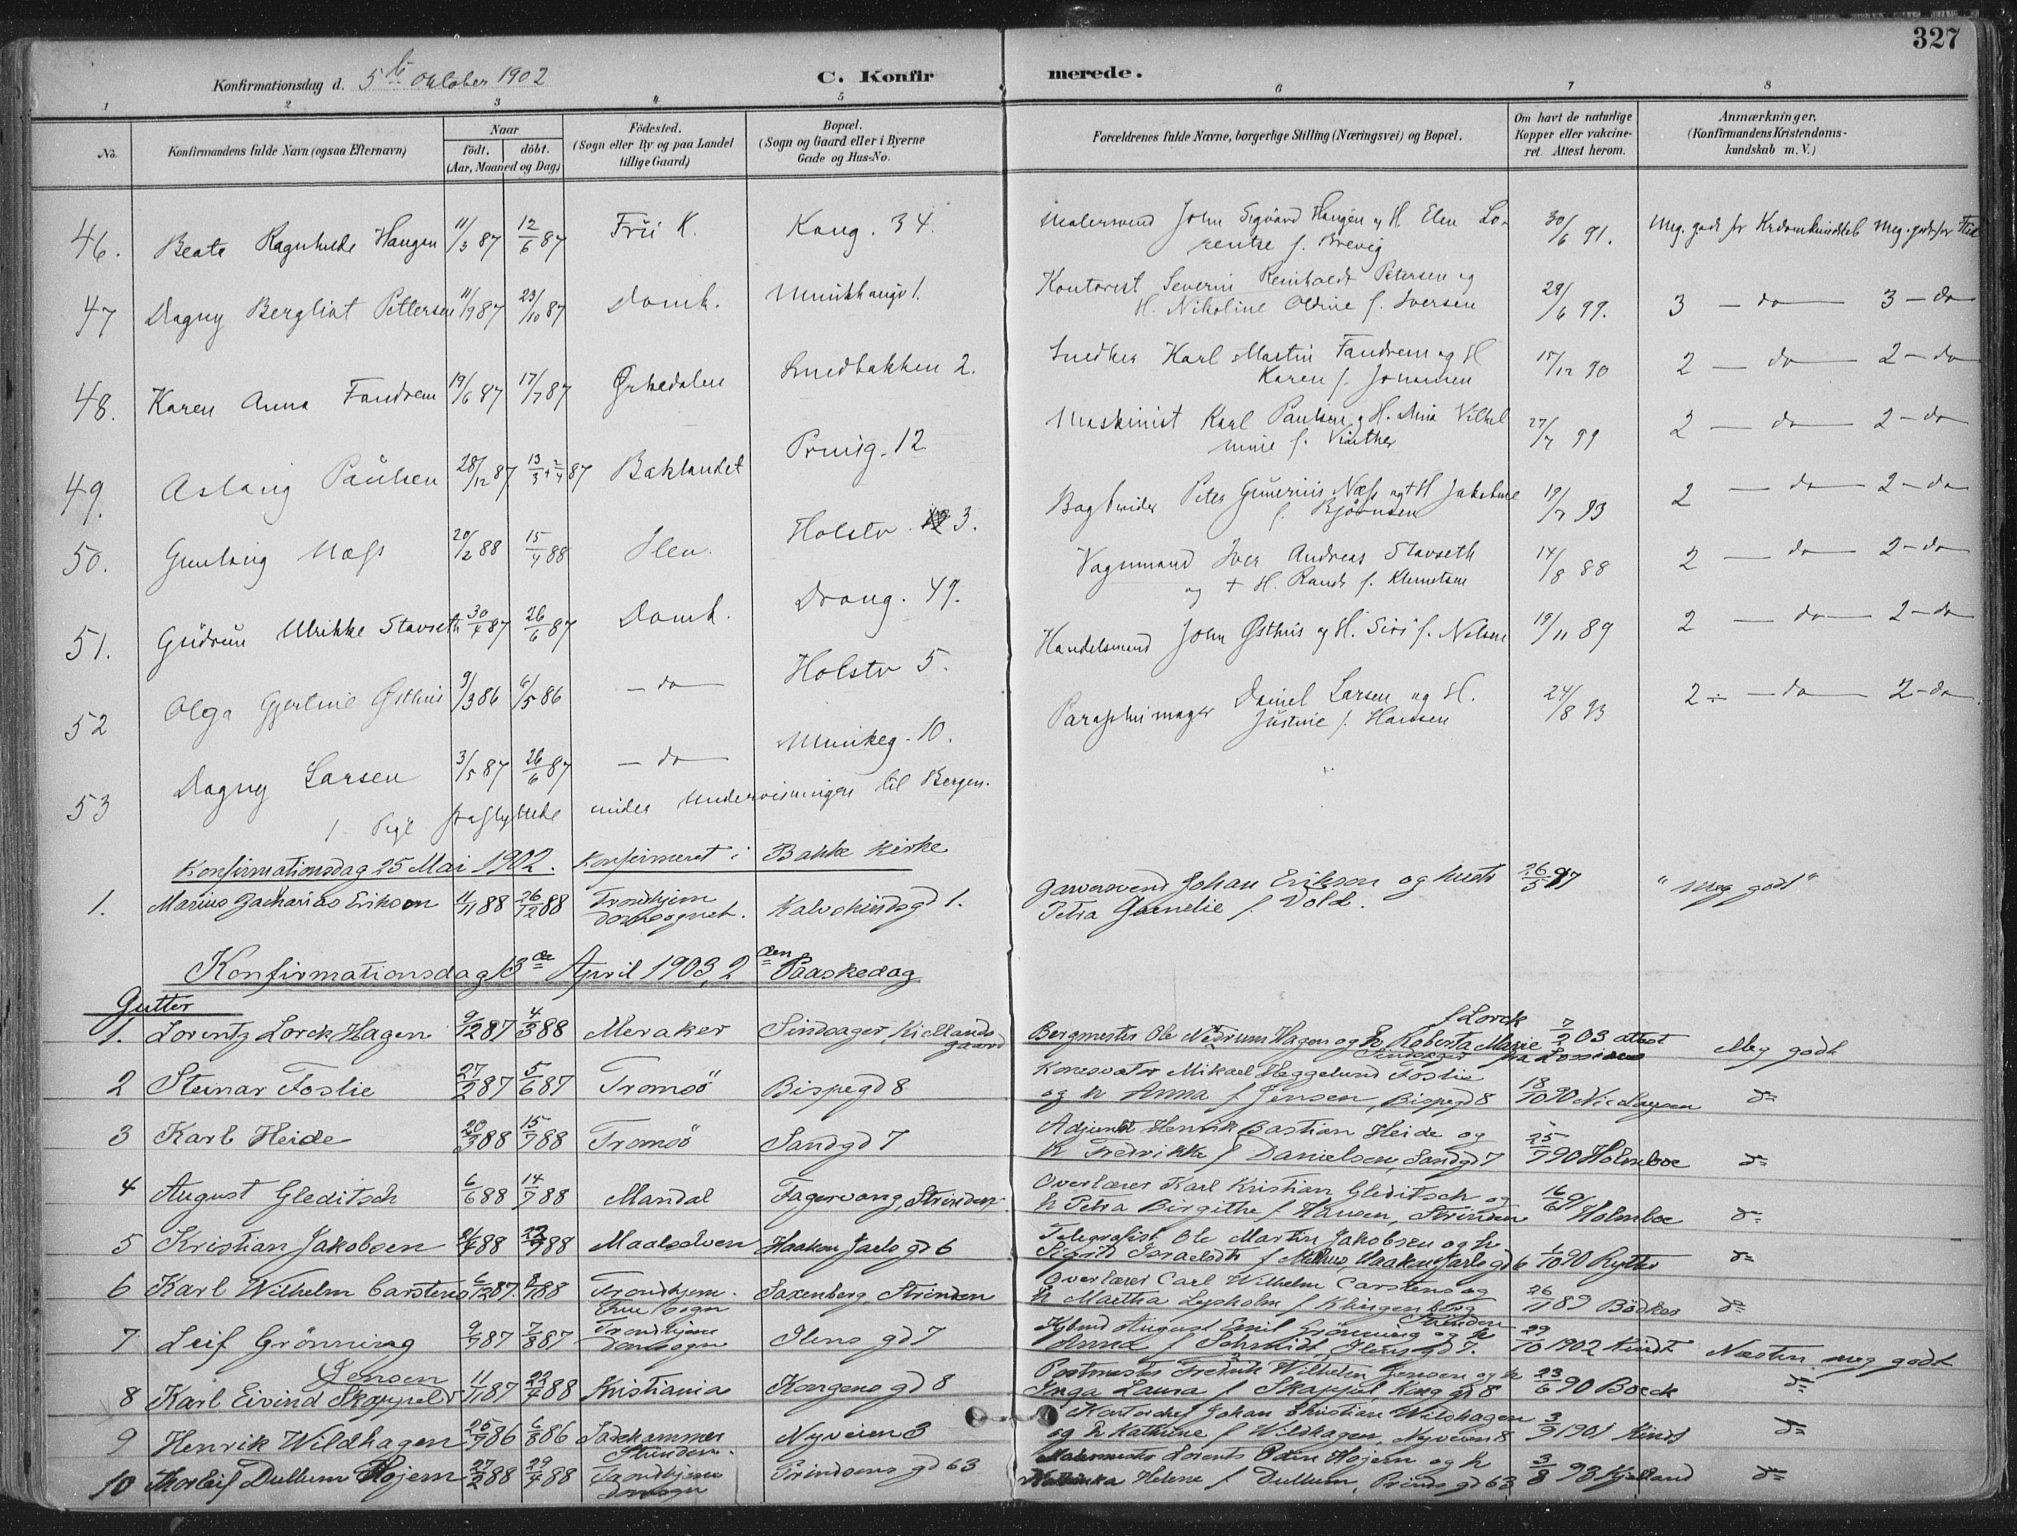 327
Konfirmationsdag d. 5te Oktober 1902
C. Konfir merede.
1 2 3 4 5 6 7 8
No. Konfirmandens fulde Navn (ogsaa Efternavn) Naar født, døbt. (Aar, Maaned og Dag) Fødested. (Sogn eller By og paa Landet tillige Gaard) Bopæl. (Sogn og Gaard eller i Byerne Gade og Hus-No. Forældrenes fulde Navne, borgerlige Stilling (Næringsvei) og Bopæl. Om havt de naturlige Kopper eller vakcineret. Attest herom. Anmærkninger. (Konfirmandens Kristendomskundskab m. V.)
46. Beata Ragnhilde Haugen 11/3 87 12/6 87 Frue K. Kong. 34. Malersvend John Sigvard Haugen og H. Elen Lorentze f. Brevig 30/6 91.
47 Dagny Bergliot Pettersen 11/9 87 23/10 87 Domk. Munkhaugv 1. Kontorist Severin Reinholdt Petersen og H. Nikoline Oldine f. Iversen 28/6 99. 3 — do — 3 — do
48. Karen Anna Fandrem 19/6 87 17/7 87 Ørkedalen Smedbakken 2. Snedker Karl Martin Fandrem og H Karen f. Johansen 15/12 90 2 — do — 2 — do
49. Aslaug Paulsen 28/12 87 Baklandet Prinsg. 12 Maskinist Karl Paulsen og H. Anna Vilhelmine f. 27/7 99 2 — do — 2 — do
50. Gunlaug Næss 20/2 88 15/4 88 Ilen. Holstv. 3. Bogbinder Peter Gunerius Næss og + H Jakobine f. Bjørnsen 19/7 93 2 — do — 2 — do
51. Gudrun Ulrikke Stavseth 30/4 87 26/6 87 Domk. Drong. 49. Vognmand Iver Andreas Stavseth og + H. Randi f. Klemetsen 14/8 88 2 — do — 2 — do
52 Olga Gjertine Østhus 9/3 86 6/5 86 — do — Holstv 5. Handelsmand John Østhus og H. Siri f. Nelsen 19/11 89 2 — do — 2 — do
53 Dagny Larsen 3/5 87 26/6 87 — do — Munkeg. 10. Daniel Larsen og H. Justine f. Hansen 24/8 93 2 ÷ — do — 2 — do
1 Pige fraflyttede under Undervisningen til Bergen.
Konfirmationsdag 25 Mai 1902. Konfirmeret i Bakke Kirke
1. Marius Zacharias Erikson 11/11 88 26/12 88 Trondhjem Domsognet. Kalvskindsgd 1. Garversvend Johan Erikson og hustr Petra f. Vold. 26/5 97 "Meg godt"
Konfirmationsdag 13de April 1903, 2den Paaskedag
Gutter
1. Lorentz Lorck Hagen 9/12 87 4/3 88 Meraker Sindsager Kiellandsgaard Bergmester Ole Hagen og h Roberta Marie f Lorck 7/2 03 attest Meg godt
2 Steinar Foslie 27/2 87 5/6 87 Tromsö Bispegd 8 Konservator Mikael Heggelund Foslie og h Anna f Jensen, Bispegd 8 18/10 90 Nicolaysen do
3 Karl Heide 20/3 88 15/7 88 Tromsö Sandgd 7 Adjunkt Henrik Bastian Heide og h Fredrikke f Danielsen, Sandgd 7 25/7 90 Holmboe do
4 August Gleditsch 6/6 88 14/9 88 Mandal Fagervang, Strinden Overlærer Karl Kristian Gleditsch og h Petra Birgithe f Hansen, Strinden 16/6 91 Holmboe do
5 Kristian Jakobsen Maalselven Haakon Jarls gd 6 Telegrafist Ole Martin Jakobsen og h Sigrid Israelsdtr f Melhus Haakon Jarls gd 6 1/10 90 Rytter do
6 Karl Wilhelm Carstens 6/12 87 Trondhjem. Frue Sogn Saxenberg, Strinden Overlærer Carl Wilhelm Carstens og h Martha Lysholm f Klingenberg Strinden 26/11 89 Bödker do
7 Leif Grönning 9/7 87 7/8 87 Trondhjem Domsogn Ilens gd 7 August Emil Grönning og h Anna f Schmidt, Ilens gd 7. 29/10 1902 Kindt Næsten meg godt
8 Karl Eivind Skappel Jensen 11/11 87 22/4 88 Kristiania Kongens gd 8 Postmester Fredrik Wilhelm Jensen og h Inga Laura f Skappel Kong gd 8 23/6 90 Boeck do
9 Henrik Wildhagen 25/7 86 6/8 86 Ladehammer Strinden. Nyveien 3 Johan Christian Wildhagen og h Kathrine f Wildhagen, Nyveien 8 3/9 1901 Kindt do
10 Thorleif Dullum Hojem 27/2 88 29/4 88 Trondhjem Domsogn Prindsens gd 63 Malermester Lorents Odin Hojem og h Helene f Dullum, Prinds gd 63 3/8 93 Kjelland do